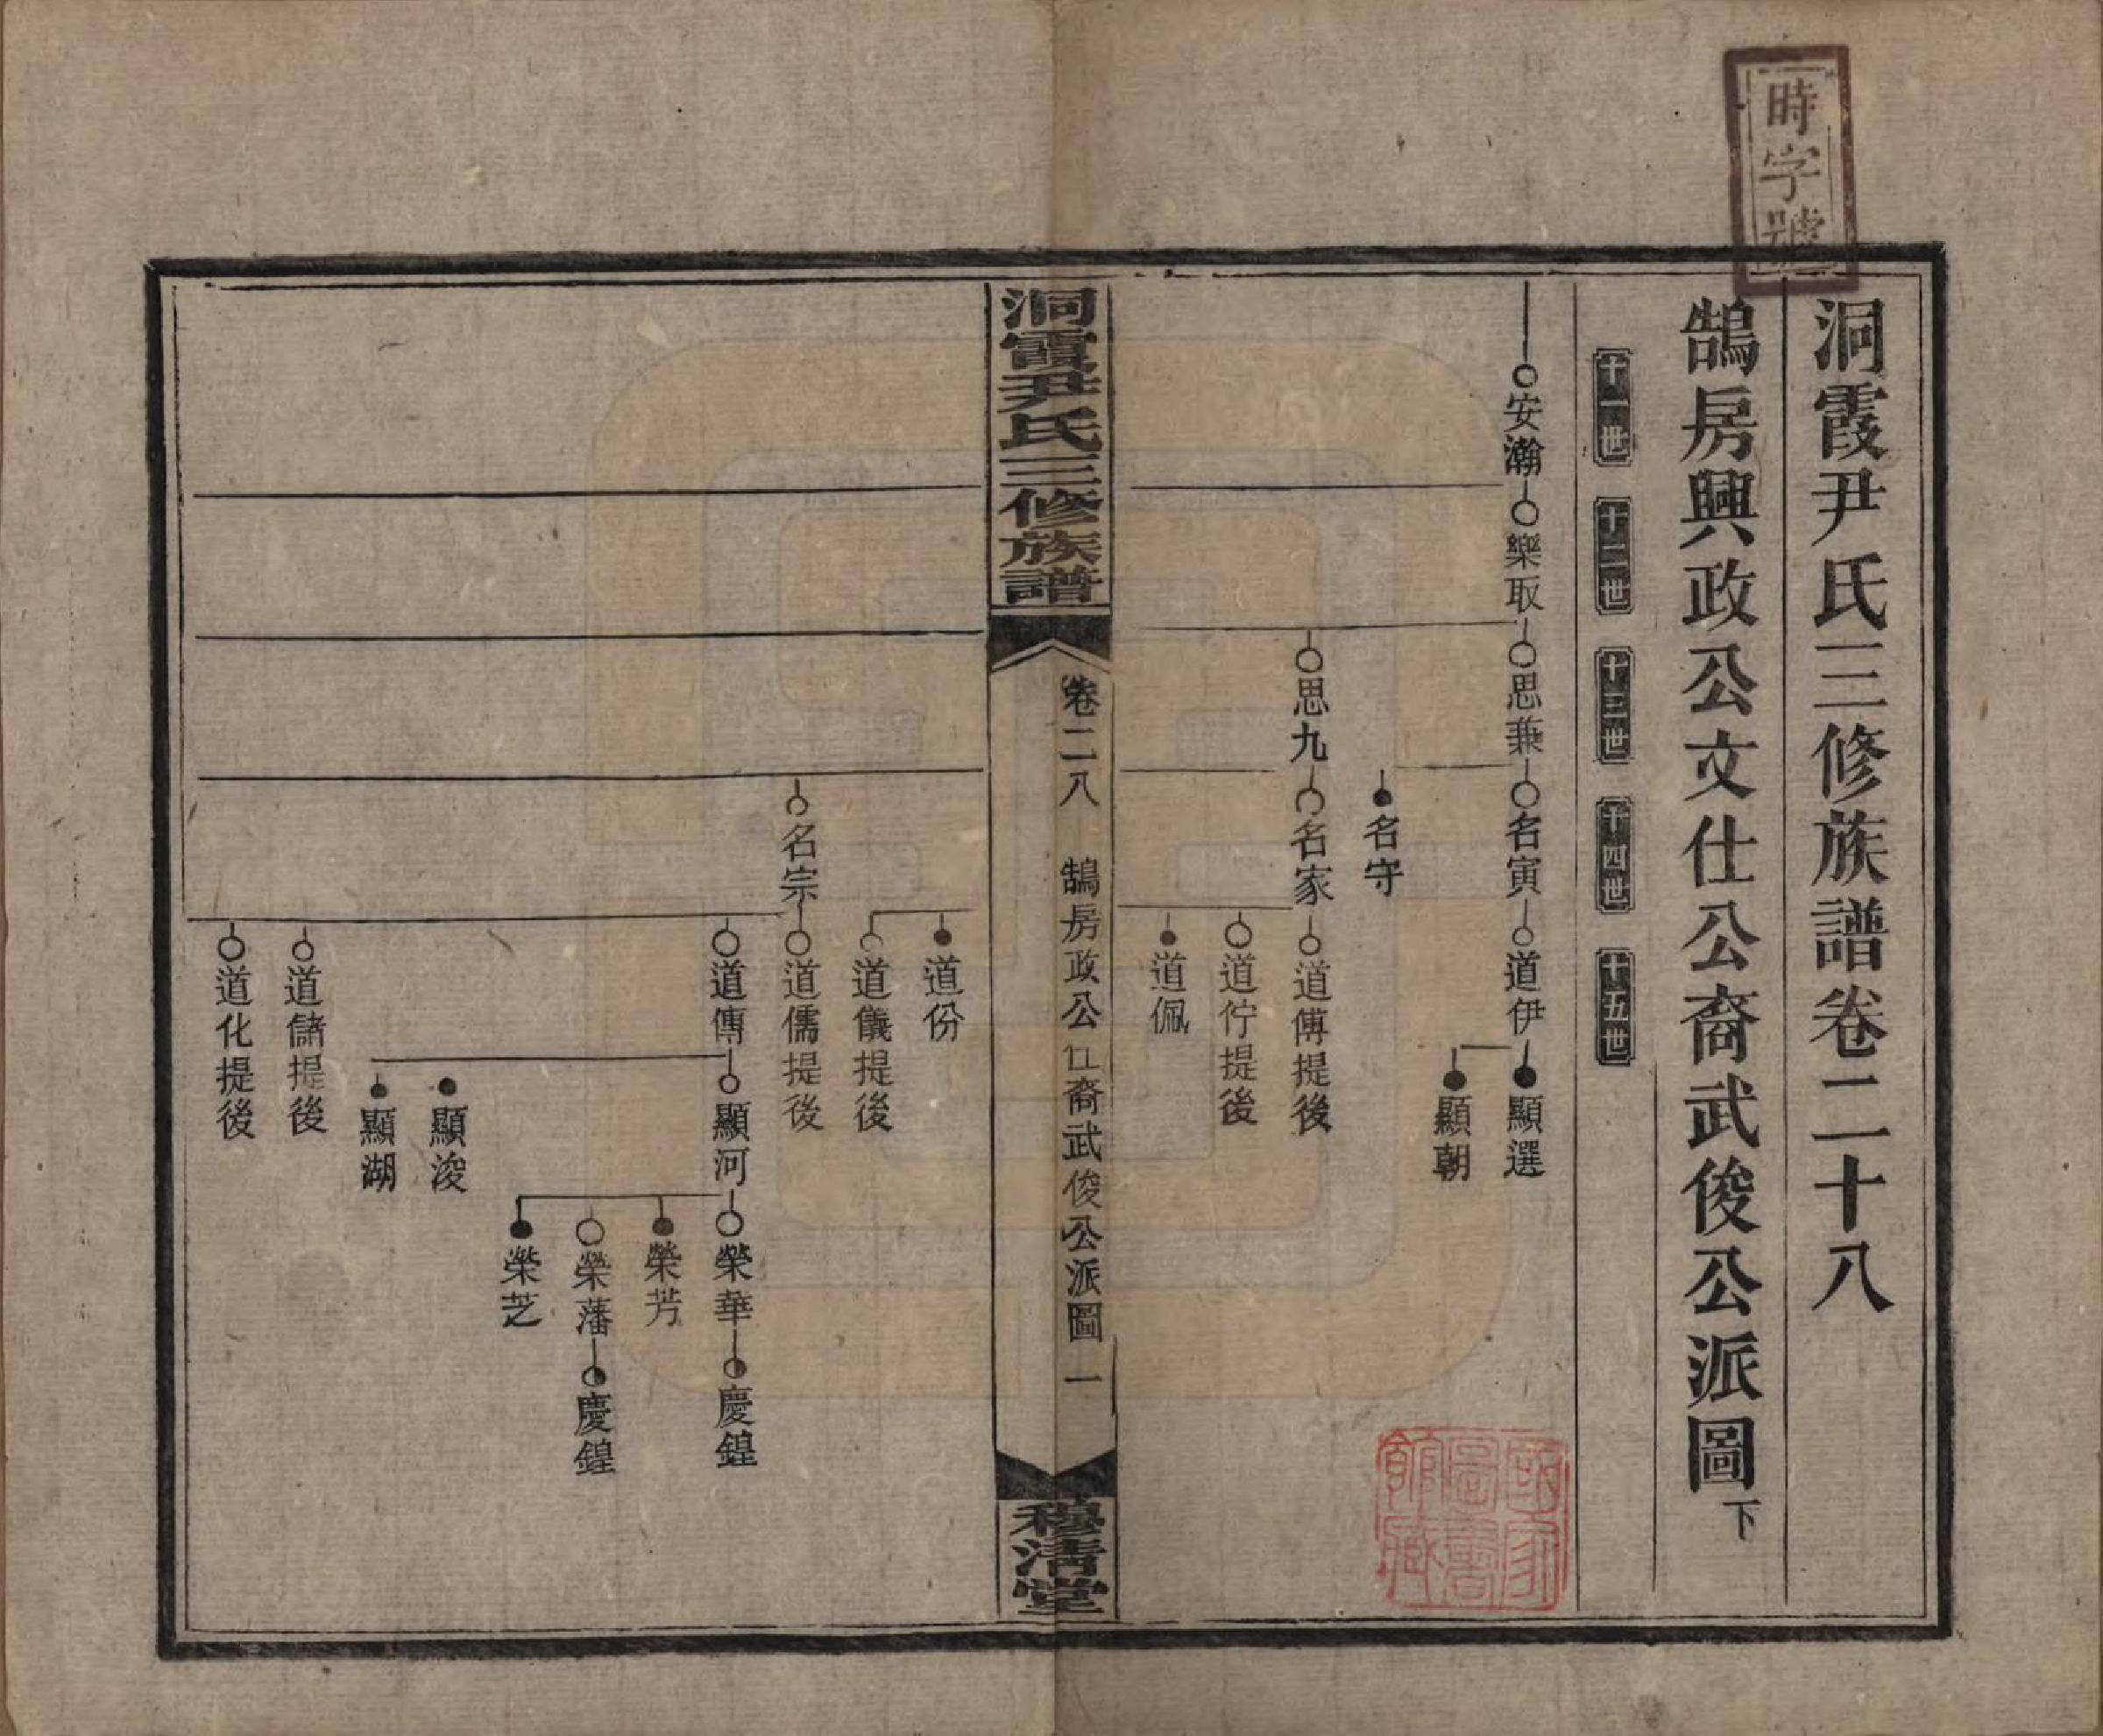 時字號
洞霞尹氏三修族譜卷二十八
鵠房興政公文仕公裔武俊公派圖下
十一世
十二世
十三世
十四世
十五世
安瀚
樂取
思兼
名寅
道伊
顯選
顯朝
名守
思九
名家
道傅提後
道佇提後
道佩
國家圖書館藏
洞霞尹氏三修族譜
卷二八
鵠房政公仕裔武俊公派圖
一
穆清堂
道份
道儀提後
名宗
道儒提後
道傳
顯河
榮華
慶鍠
榮芳
榮藩
慶鍠
榮芝
顯浚
顯湖
道儲提後
道化提後